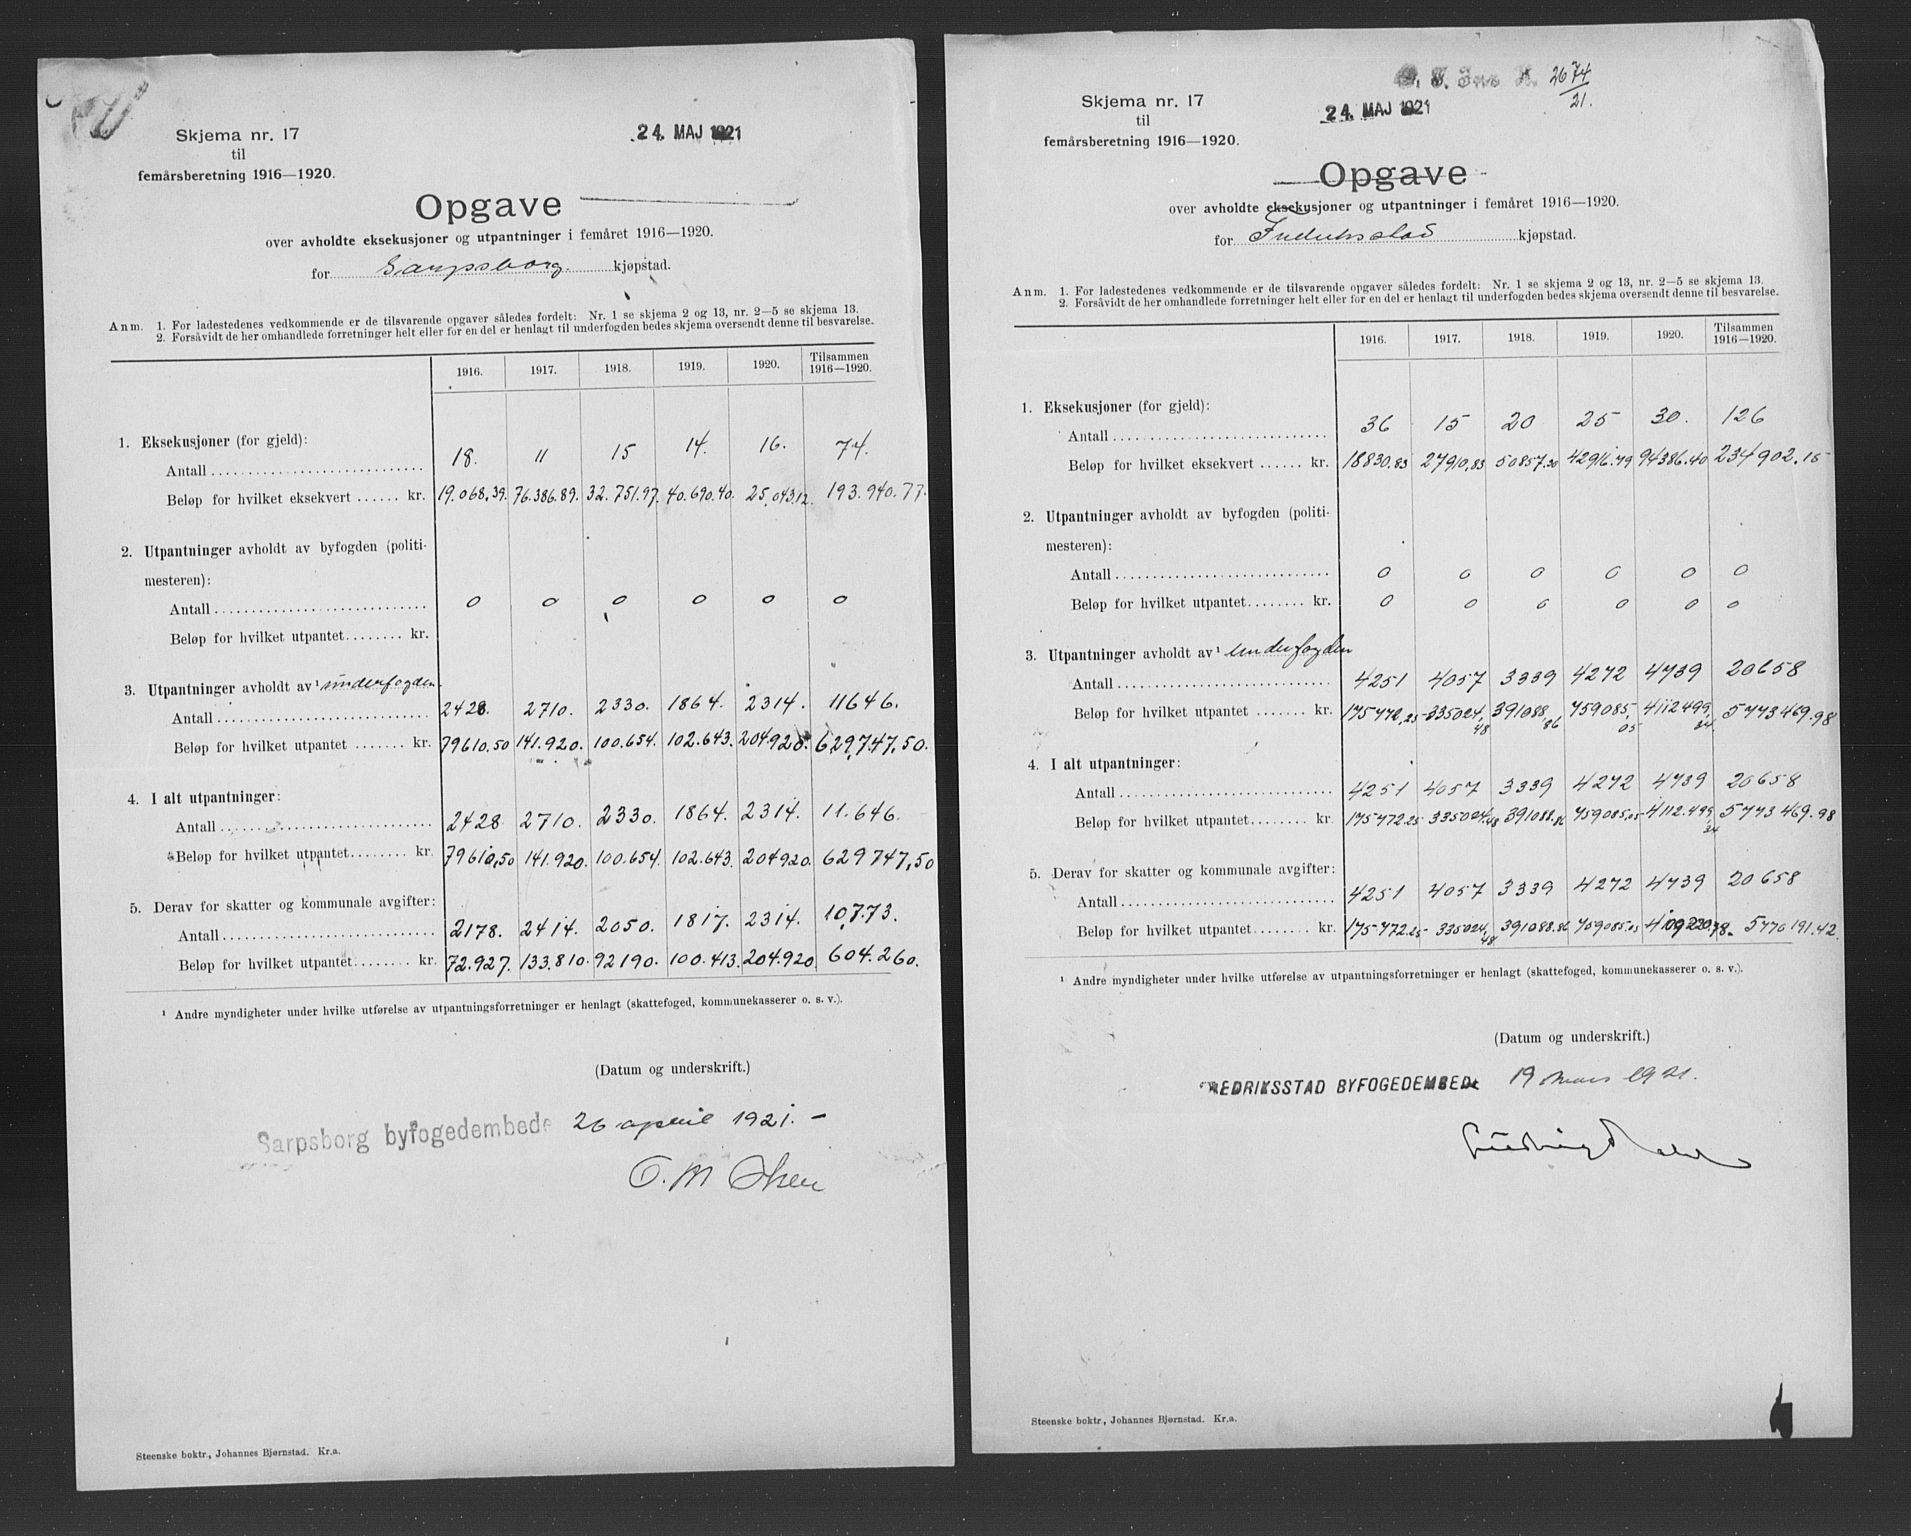 Skjema nr. 17
til
femårsberetning 1916—1920.
24. MAJ 1921
Opgave
over avholdte eksekusjoner og utpantninger i femåret 1916—1920.
for Sarpsborg. kjøpstad.
Anm. 1. For ladestedenes vedkommende er de tilsvarende opgaver således fordelt: Nr. 1 se skjema 2 og 13, nr. 2—5 se skjema 13.
2. Forsåvidt de her omhandlede forretninger helt eller for en del er henlagt til underfogden bedes skjema oversendt denne til besvarelse.
1916. 1917. 1918. 1919. 1920. Tilsammen 1916—1920.
1. Eksekusjoner (for gjeld):
Antall 18. 11 15 14. 16. 74.
Beløp for hvilket eksekvert ...... kr. 19.068,39. 76.386.89. 32.751.97. 40.690.40. 25.043.12. 193.940.77.
2. Utpantninger avholdt av byfogden (politi-
mesteren):
Antall 0 0 0 0 0 0
Beløp for hvilket utpantet ........ kr.
3. Utpantninger avholdt av ¹ underfogden.
Antall 2428. 2710. 2330. 1864. 2314. 11646.
Beløp for hvilket utpantet ....... kr. 79610.50 141.920. 100.654. 102.643. 204.920. 629.747.50.
4. I alt utpantninger:
Antall 2428 2710. 2330. 1864. 2314. 11.646.
Beløp for hvilket utpantet ........ kr. 79610,50 141.920. 100.654. 102.643. 204920. 629747,50
5. Derav for skatter og kommunale avgifter:
Antall 2178. 2414. 2050. 1817. 2314. 10.773.
Beløp for hvilket utpantet ........ kr. 72.927. 133.810. 92190. 100.413. 204.920. 604.260.
¹ Andre myndigheter under hvilke utførelse av utpantningsforretninger er henlagt (skattefoged, kommunekasserer o. s. v.).
(Datum og underskrift.)
Sarpsborg byfogedembede 26 april 1921. –
O. M Olsen
Steenske boktr., Johannes Bjørnstad. Kr.a.
2674
21.
Skjema nr. 17
til
femårsberetning 1916—1920.
24. MAJ 1921
Opgave
over avholdte eksekusjoner og utpantninger i femåret 1916—1920.
for Fredriksstad kjøpstad.
Anm. 1. For ladestedenes vedkommende er de tilsvarende opgaver således fordelt: Nr. 1 se skjema 2 og 13, nr. 2—5 se skjema 13.
2. Forsåvidt de her omhandlede forretninger helt eller for en del er henlagt til underfogden bedes skjema oversendt denne til besvarelse.
1916. 1917. 1918. 1919. 1920. Tilsammen 1916—1920.
1. Eksekusjoner (for gjeld):
Antall 36 15 20 25 30. 126
Beløp for hvilket eksekvert ...... kr. 18830.83 27910,83 50857.30 42916.79 94386.40 234902.15
2. Utpantninger avholdt av byfogden (politi-
mesteren):
Antall 0 0 0 0 0 0
Beløp for hvilket utpantet ........ kr. 0 0 0 0 0 0
3. Utpantninger avholdt av ¹ Underfogden
Antall 4251 4057 3339 4272 4739 20658
Beløp for hvilket utpantet ....... kr. 175772,25 335024,48 391088,86 759085,05 4112499,34 5773469.98
4. I alt utpantninger:
Antall 4251 4057 3339 4272 4739 20658
Beløp for hvilket utpantet ........ kr. 175772.25 335024.48 391088.86 759085.05 4112.499,34 5773469.98
5. Derav for skatter og kommunale avgifter:
Antall 4251 4057 3339 4272 4739 20658
Beløp for hvilket utpantet ........ kr. 175772.25 335024,48 391088.86 759085.05 4109220.78. 5770191.42.
¹ Andre myndigheter under hvilke utførelse av utpantningsforretninger er henlagt (skattefoged, kommunekasserer o. s. v.).
(Datum og underskrift.)
FREDRIKSSTAD BYFOGEDEMBEDE 19 mars 1921.
Steenske boktr., Johannes Bjørnstad. Kr.a.